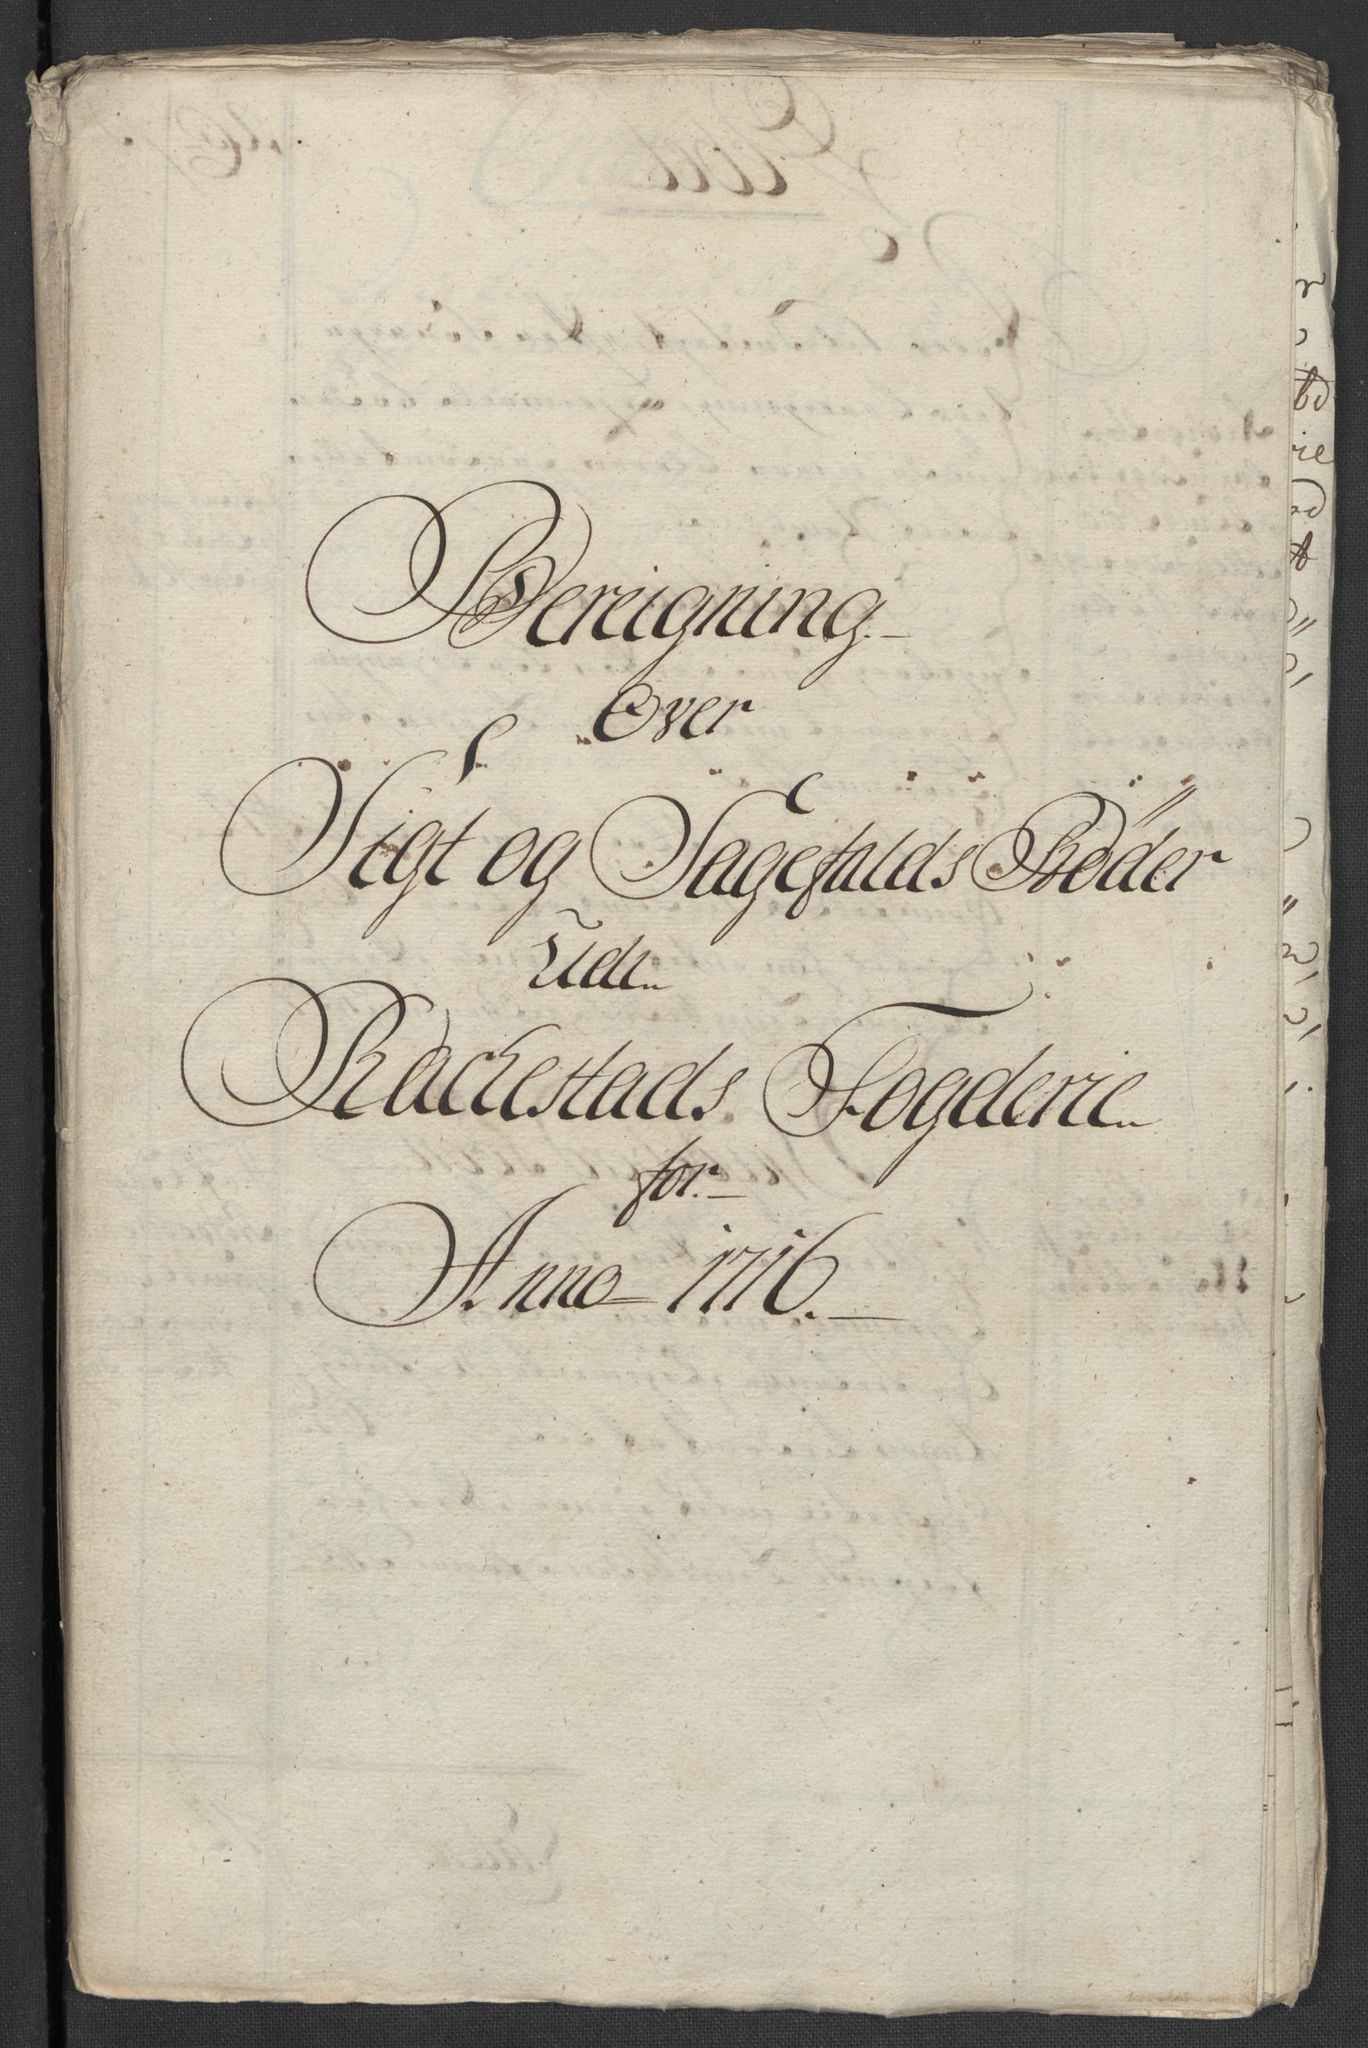 Bereigning
Over
Sigt og Sagefalds Bøder
Udi
Rackestads Fogderie
for
Anno 1716.